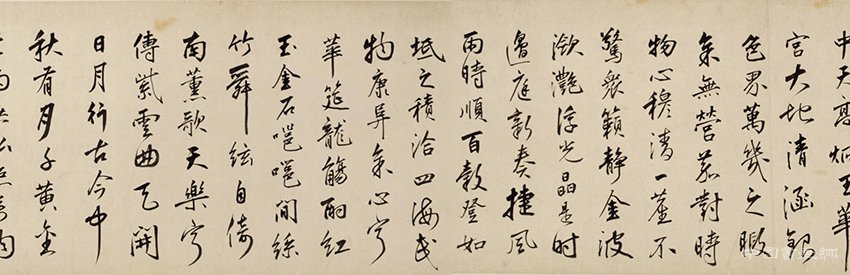 中天高炯玉華
宮大地清涵銀
色界萬幾之暇
余無營茲對時
物心穆清一塵不
驚衆籟静金波
瀲灩浮光晶是时
邊庭新奏捷風
雨時順百穀登如
坻之積洽四海民
物康阜余心寧
華筵龍觴酌紅
玉金石嗈嗈間絲
竹舜絃自倚
南薰歌天樂寧
傳紫雲曲天開
日月行古今中
秋有月子黃金